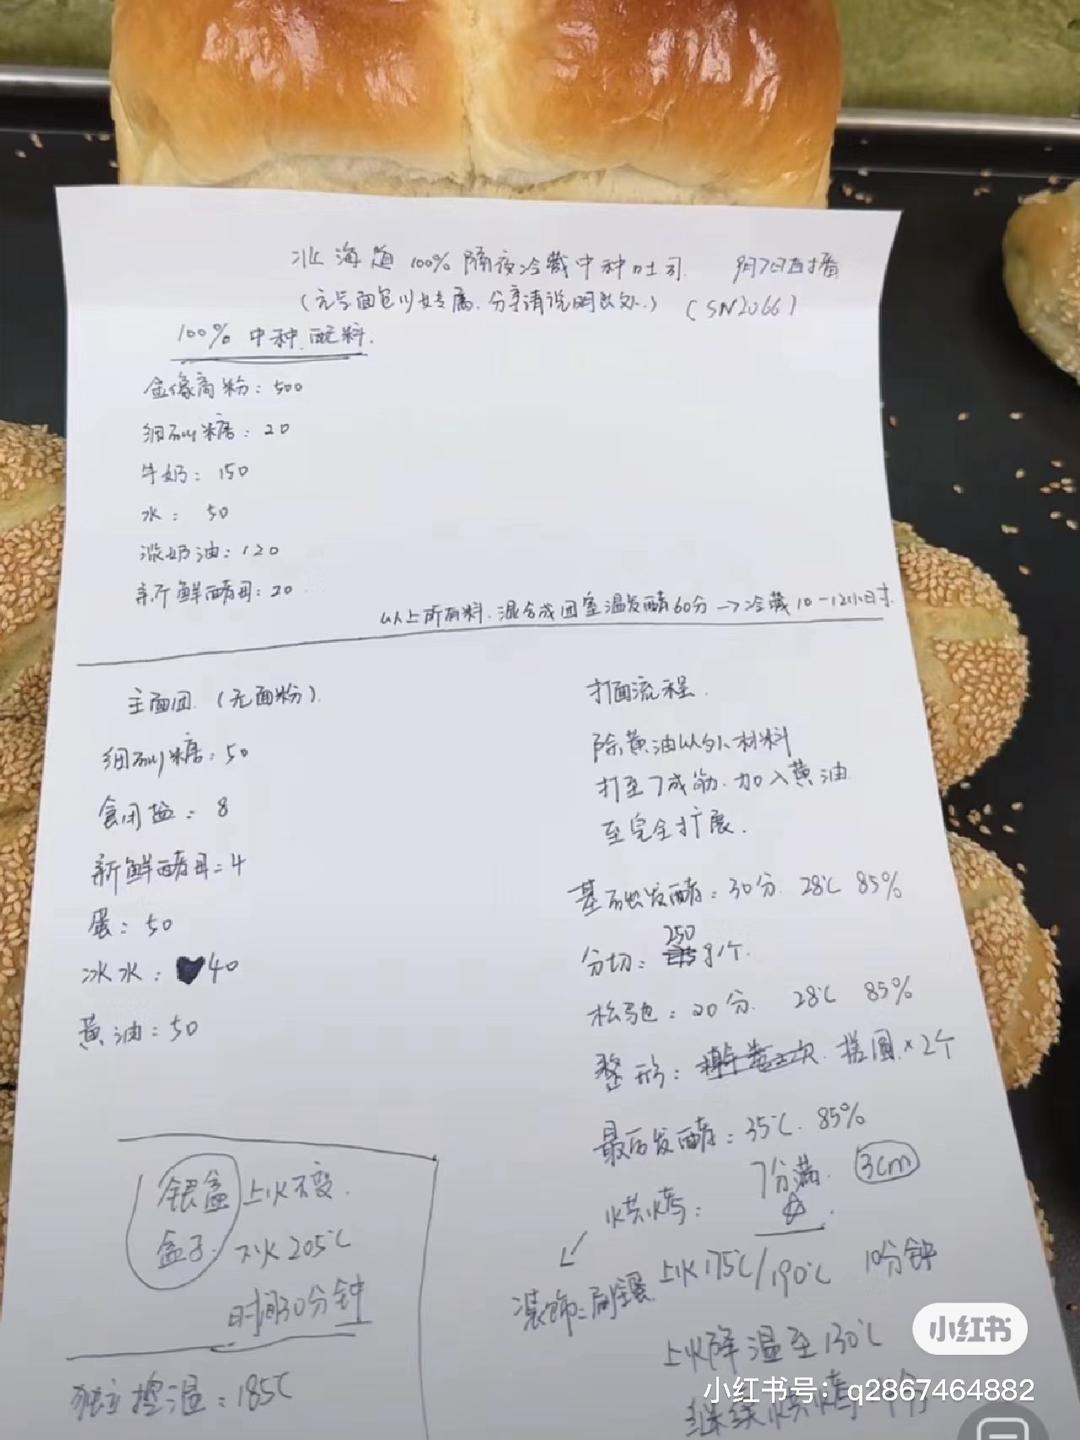 北海道100%隔夜冷藏中种吐司 9月7日直播
(元宝面包小女专属.分享请说明出处.) (SN2066)
100%中种.配料.
金像高粉:500
细砂糖:20
牛奶:150
水:50
淡奶油:120
新鲜酵母:20
以上所有料.混合成团室温发酵60分→冷藏10-12小时.
主面团.(无面粉).
细砂糖:50
食用盐:8
新鲜酵母:4
蛋:50
冰水:40
黄油:50
打面流程.
除黄油以外材料
打至7成筋.加入黄油
至完全扩展.
基础发酵:30分 28℃ 85%
分切:250 个.
松弛:20分. 28℃ 85%
整形: 搓圆×2个
最后发酵:35℃. 85%
7分满. 3cm
烘烤:
装饰:刷蛋
上火175℃/190℃ 10分钟
上火降温至130℃
继续烘烤 分
银盒 上火不变.
盒子: 下火205℃
时间30分钟
独立控温:185℃
小红书
小红书号:q2867464882